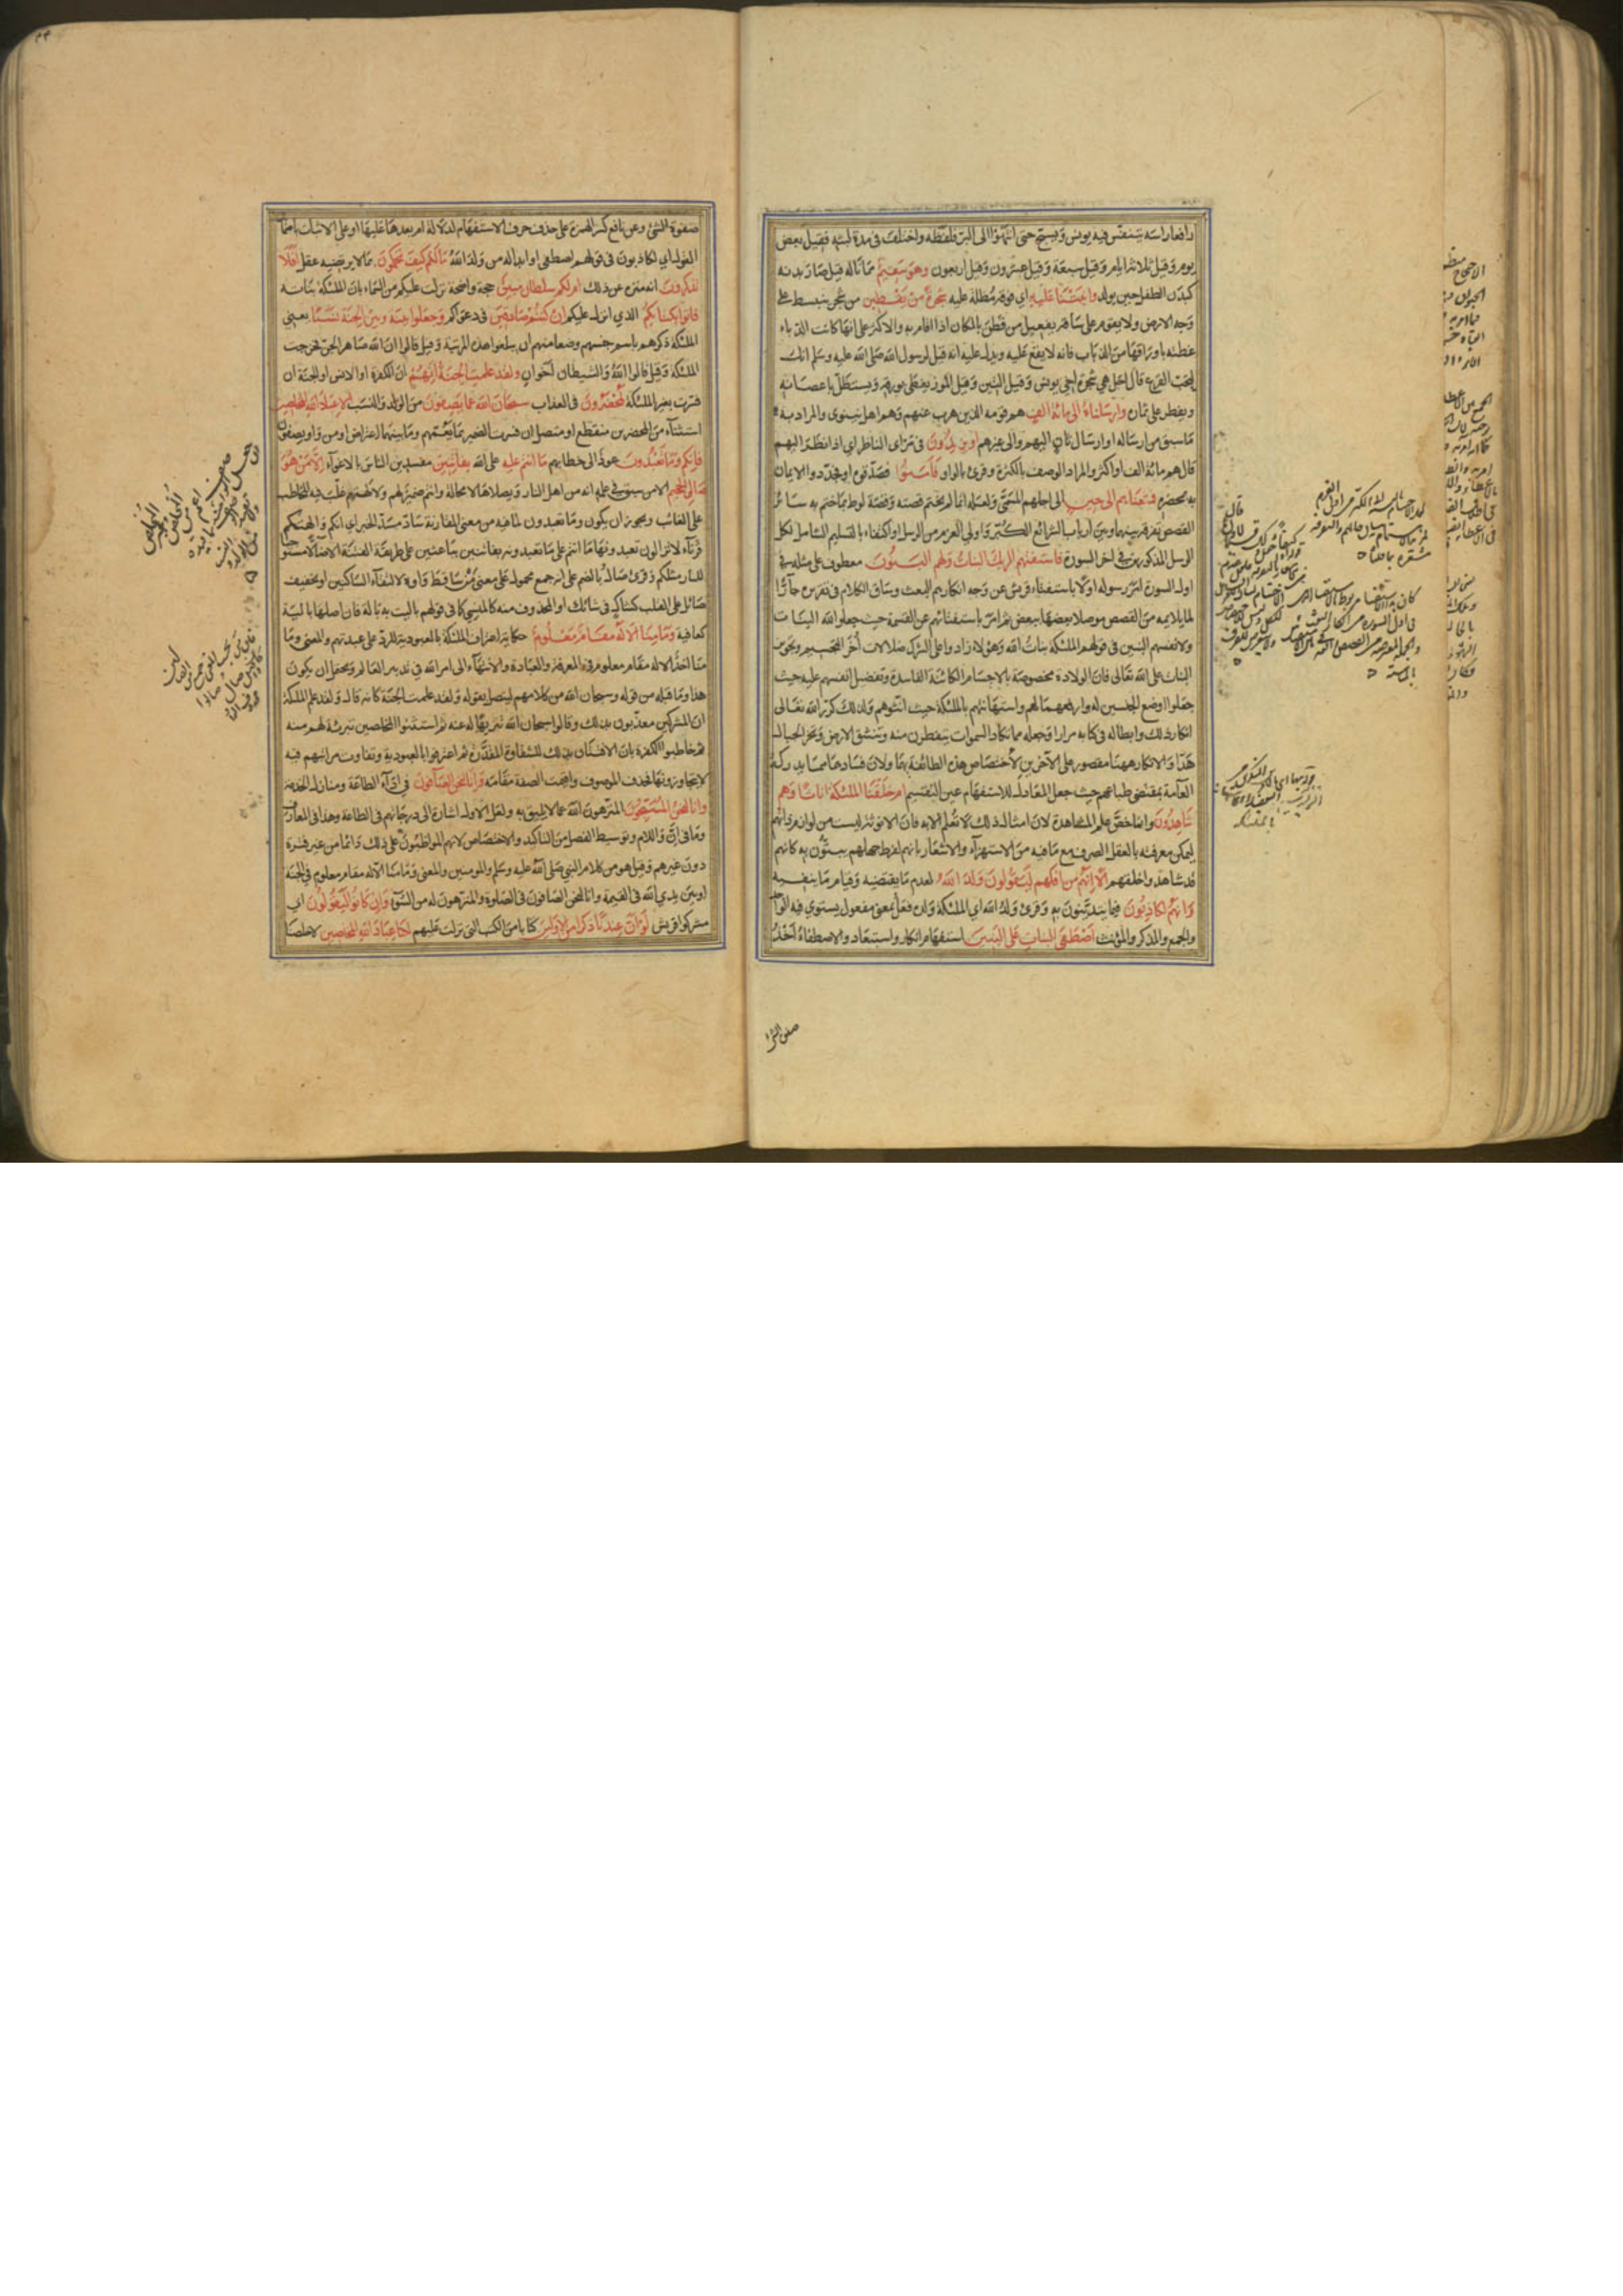 رافعا راسه يتنفس فيه يونس ويسبح حتى انتهوا الى البر فلفظه واختلف في مدة لبثه فقيل بعض
يوم وقيل ثلاثة ايام وقيل سبعة وقيل عشرون وقيل اربعون وهو سقيم مما ناله قيل صار بدنه
كبدن الطفل حين يولد وانبتنا عليه اي فوقه مظلة عليه شجرة من يقطين من شجر ينبسط على
وجه الارض ولا يقوم على ساقه يفعيل من قطن بالمكان اذا اقام به والاكثر على انها كانت الدباء
غطته باوراقها من الذباب فانه لا يقع عليه ويدل عليه انه قيل لرسول الله صلى الله عليه وسلم انك
لتحب القرع قال اجل هي شجرة اخي يونس وقيل التين وقيل الموز يغطى بورقه ويستظل باغصانه
ويفطر على ثماره وارسلناه الى مائة الف هم قومه الذين هرب عنهم وهم اهل نينوى والمراد به
ما سبق من ارساله او ارسال ثان اليهم والى غيرهم او يزيدون في مراى الناظر اي اذا نظر اليهم
قال هم مائة الف او اكثر والمراد الوصف بالكثرة وقرئ بالواو فآمنوا فصدقوه او فجددوا الايمان
به بمحضره فمتعناهم الى حين الى اجلهم المسمى ولعله انما لم يختم قصته وقصة لوط بما ختم به سائر
القصص تفرقة بينهما وبين ارباب الشرائع الكبر واولي العزم من الرسل او اكتفاء بالتسليم الشامل لكل
الرسل المذكورين في اخر السورة فاستفتهم الربك البنات ولهم البنون معطوف على مثله في
اول السورة امر رسوله اولا باستفتاء قريش عن وجه انكارهم البعث وساق الكلام في تقريره جارا
لما يلايمه من القصص موصولا بعضها ببعض ثم امر باستفتائهم عن القسمة حيث جعلوا لله البنات
ولانفسهم البنين في قولهم الملئكة بنات الله وهؤلاء زادوا على الشرك ضلالات اخر التجسيم وتجويز
البنات على الله تعالى فان الولادة مخصوصة بالاجسام الكائنة الفاسدة وتفضيل انفسهم عليه حيث
جعلوا اوضع الجنسين له وارفعهما لهم واستهانتهم بالملئكة حيث انثوهم ولذلك كرر الله تعالى
انكار ذلك وابطاله في كتابه مرارا وجعله مما تكاد السموات يتفطرن منه وتنشق الارض وتخر الجبال
هدا والانكار ههنا مقصور على الاخرين لاختصاص هذه الطائفة بهما ولان فسادهما مما يدركه
العامة بمقتضى طباعهم حيث جعل المعادل للاستفهام عن التقسيم ام خلقنا الملئكة اناثا وهم
شاهدون وانما خص علم المشاهدة لان امثال ذلك لا تعلم الا به فان الانوثة ليست من لوازم ذاتهم
ليمكن معرفته بالعقل الصرف مع ما فيه من الاستهزاء والاشعار بانهم لفرط جهلهم يبتون به كانهم
قد شاهدوا خلقهم الا انهم من افكهم ليقولون ولد الله لعدم ما يقتضيه وقيام ما ينفيه
وانهم لكاذبون فيما يتدينون به وقرئ ولد الله اي الملئكة ولده فعل بمعنى مفعول يستوي فيه الواحد
والجمع والمذكر والمؤنث اصطفى البنات على البنين استفهام انكار واستبعاد والاصطفاء اخذ
صفوة الشئ وعن نافع كسر الهمزة على حذف حرف الاستفهام لدلالة ام بعدها عليها او على الاثبات باضمار
القول اي لكاذبون في قولهم اصطفى او ابداله من ولد الله ما لكم كيف تحكمون بما لا يرتضيه عقل افلا
تذكرون انه منزه عن ذلك ام لكم سلطان مبين حجة واضحة نزلت عليكم من السماء بان الملئكة بناته
فاتوا بكتابكم الذي انزل عليكم ان كنتم صادقين في دعواكم وجعلوا بينه وبين الجنة نسبا يعني
الملئكة ذكرهم باسم جنسهم وضعا منهم ان يبلغوا هذه المرتبة وقيل قالوا ان الله صاهر الجن فخرجت
الملئكة وقيل قالوا الله والشيطان اخوان ولقد علمت الجنة انهم ان الكفرة او الانس او الجنة ان
فسرت بغير الملئكة لمحضرون في العذاب سبحان الله عما يصفون من الولد والنسب الا عباد الله المخلصين
استثناء من المحضرين منقطع او متصل ان فسرت الضمير بما يعمهم وما بينهما اعتراض او من واو يصفون
فانكم وما تعبدون عود الى خطابهم ما انتم عليه على الله بفاتنين مفسدين الناس بالاغواء الا من هو
صالي الجحيم الا من سبق في علمه انه من اهل النار ويصلاها لا محالة وانتم ضمير لهم ولالهتهم غلب فيه المخاطب
على الغائب ويجوز ان يكون وما تعبدون لما فيه من معنى المقارنة سادا مسد الخبر اي انكم والهتكم
قرناء لا تزالون تعبدونها ما انتم على ما تعبدونه بفاتنين بباعثين على طريقة الفتنة الا ضالا مستوجبا
للنار مثلكم وقرئ صال بالضم على انه جمع محمول على معنى من ساقط واوه لالتقاء الساكنين او تخفيف
صائل على القلب كشاك في شائك او المحذوف منه كالمنسي كما في قولهم ما باليت به بالة فان اصلها بالية
كعافية وما منا الا له مقام معلوم حكاية اعتراف الملئكة بالعبودية للرد على عبدتهم والمعنى وما
منا احد الا له مقام معلوم في المعرفة والعبادة والانتهاء الى امر الله في تدبير العالم ويحتمل ان يكون
هذا وما قبله من قوله وسبحان الله من كلامهم ليتصل بقوله ولقد علمت الجنة كانه قال ولقد علم الملئكة
ان المشركين معذبون بذلك وقالوا سبحان الله تنزيها له عنه ثم استثنوا المخلصين تبرئة لهم منه
ثم خاطبوا الكفرة بان الافتتان بذلك للشقاوة المقدرة ثم اعترفوا بالعبودية وتفاوت مراتبهم فيه
لا يتجاوزونها فحذف الموصوف واقيمت الصفة مقامه وانا لنحن الصافون في اداء الطاعة ومنازل الخدمة
وانا لنحن المسبحون المنزهون الله عما لا يليق به ولعل الاول اشارة الى درجاتهم في الطاعة وهذا في المعارف
وما في ان واللام وتوسيط الفصل من التاكيد والاختصاص لانهم المواظبون على ذلك دائما من غير فترة
دون غيرهم وقيل هو من كلام النبي صلى الله عليه وسلم والمومنين والمعنى وما منا الا له مقام معلوم في الجنة
او بين يدي الله في القيمة وانا لنحن الصافون في الصلوة والمنزهون له من السوء وان كانوا ليقولون اي
مشركوا قريش لو ان عندنا ذكرا من الاولين كتابا من الكتب التي نزلت عليهم لكنا عباد الله المخلصين لاخلصنا